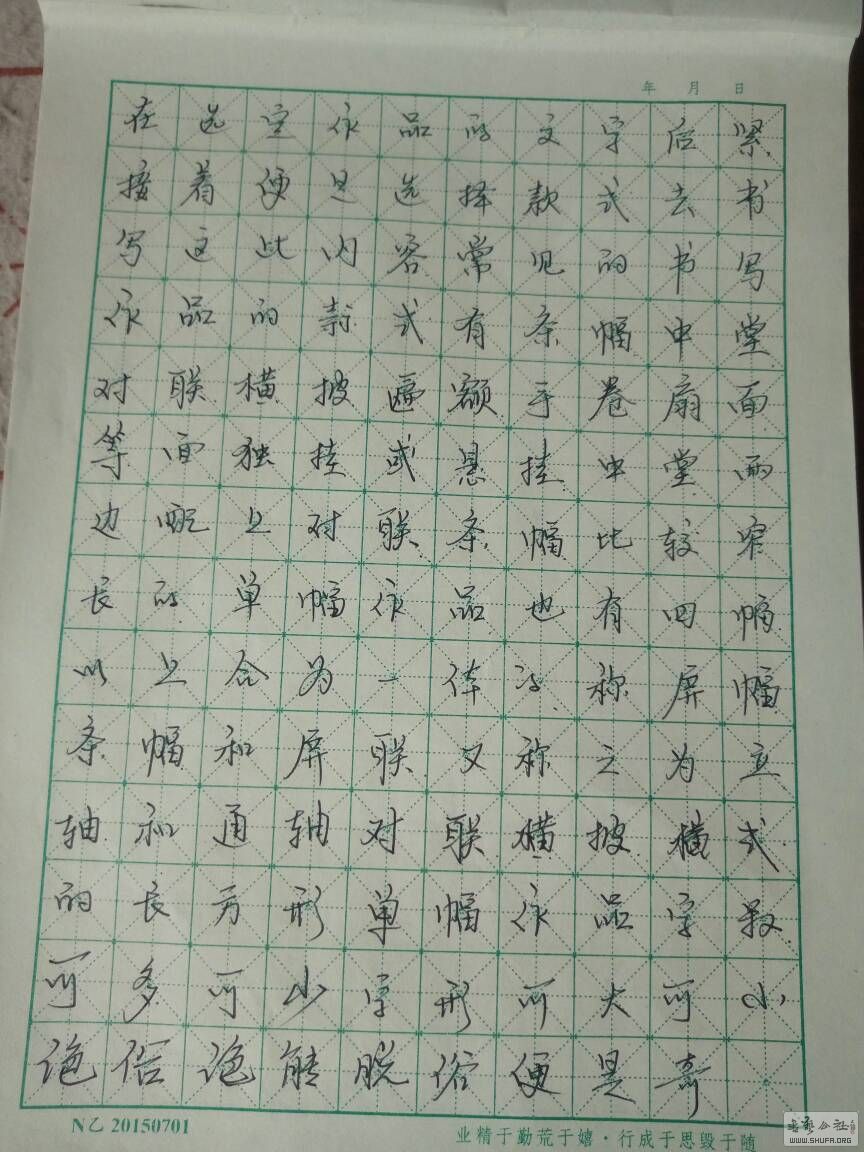 年 月 日
在选定作品的文字后紧
接着便是选择款式去书
写这些内容常见的书写
作品的款式有条幅中堂
对联横披匾额手卷扇面
等面独挂或悬挂中堂两
边配上对联条幅比较窄
长的单幅作品也有四幅
以上合为一体的称屏幅
条幅和屏联又称之为立
轴和通轴对联横披横式
的长方形单幅作品字数
可多可少字形可大可小
绝俗绝能脱俗便是奇
N乙 20150701
业精于勤荒于嬉·行成于思毁于随
书艺公社
WWW.SHUFA.ORG